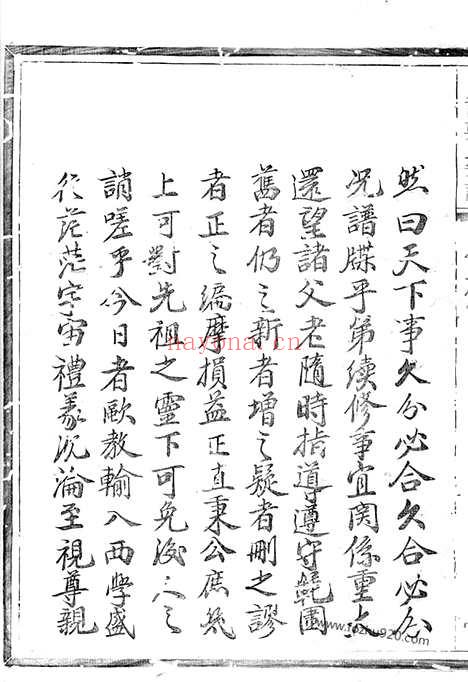 然曰天下事久分必合久合必分
况譜牒乎第续修事宜関係重大
還望諸父老隨時指導遵守範圍
舊者仍之新者增之疑者刪之謬
者正之編摩損益正直秉公庶幾
上可對先祖之靈下可免後人之
誚嗟乎今日者歐教輸入西學盛
行茫茫宇宙禮義沉淪至視尊親
nayona.cn
fozhu920.com